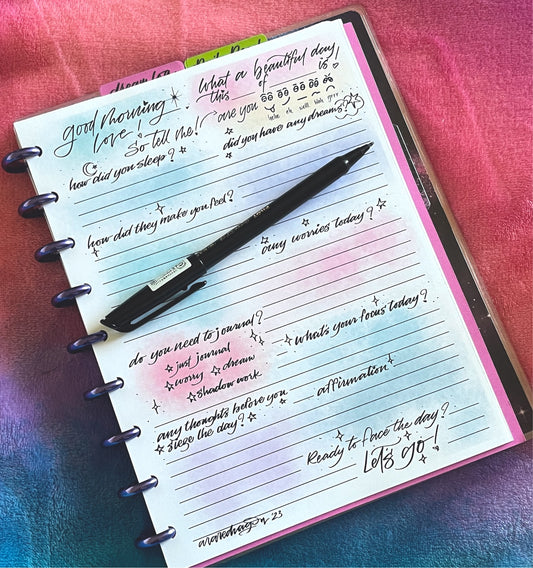 dream log
good morning love!
What a beautiful day
this ______ of ______ is!
So tell me! are you
hehe eh well blah grrr
how did you sleep?
did you have any dreams?
how did they make you feel?
any worries today?
do you need to journal?
☆ just journal
☆ worry ☆ dream
☆ shadow work
what's your focus today?
any thoughts before you
siege the day?
affirmation
Ready to face the day?
Let's go!
23